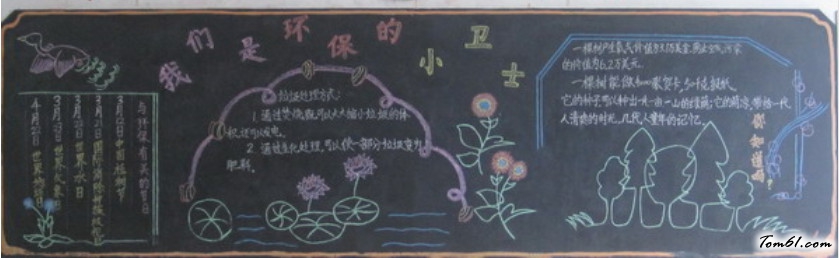 我们是环保的小卫士
与环保有关的节日
3月12日中国植树节
3月22日世界水日
3月23日世界气象日
4月22日世界地球日
垃圾处理方式：
1.通过焚烧,既可以大大缩小垃圾的体
积,还可以发电。
2.通过生化处理,可以使一部分垃圾变为
肥料。
一棵树产生氧气价值为3.1万美金,防止空气污染
的价值为6.2万美元。
一棵树能做4000张贺卡,
它的种子可以种出一山一山的
人清晰的时光,几代人童年的记忆。
你知道吗？
Tom61.com